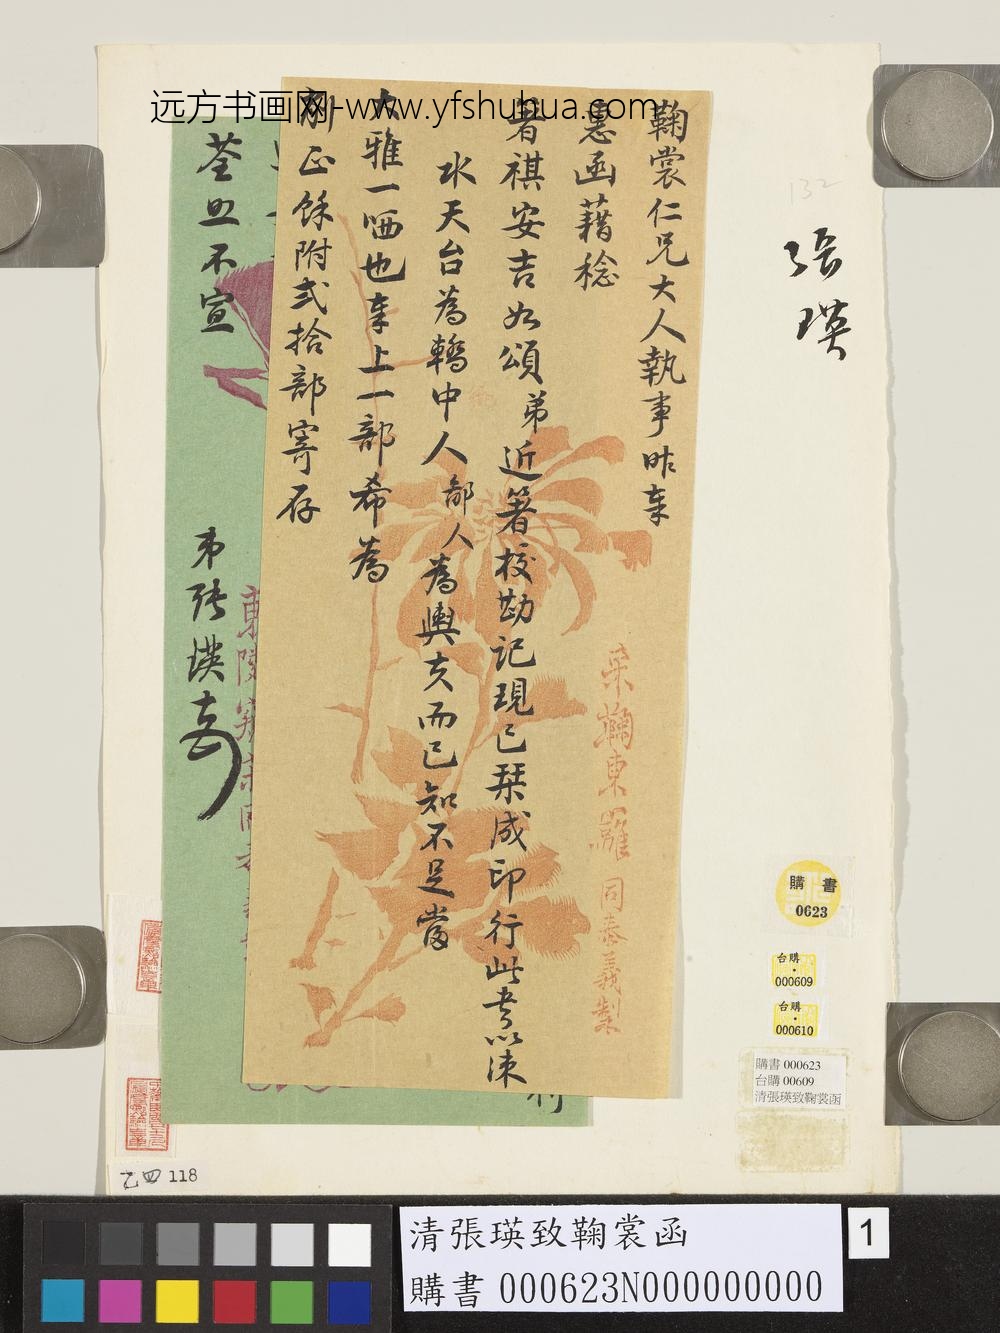 远方书画网-www.yfshuhua.com
132
張瑛
鞠裳仁兄大人執事昨奉
惠函藉稔
著祺安吉如頌弟近箸校勘記現已栞成印行此書以涑
水天台為轎中人鄙人為輿夫而已知不足當
大雅一哂也奉上一部希為
削正餘附弍拾部寄存
采鞠東籬 同泰義製
荃照不宣
弟張瑛頓首
購書
0623
台購
000609
台購
000610
購書 000623
台購 00609
清張瑛致鞠裳函
乙四 118
清張瑛致鞠裳函
購書 000623N000000000
1